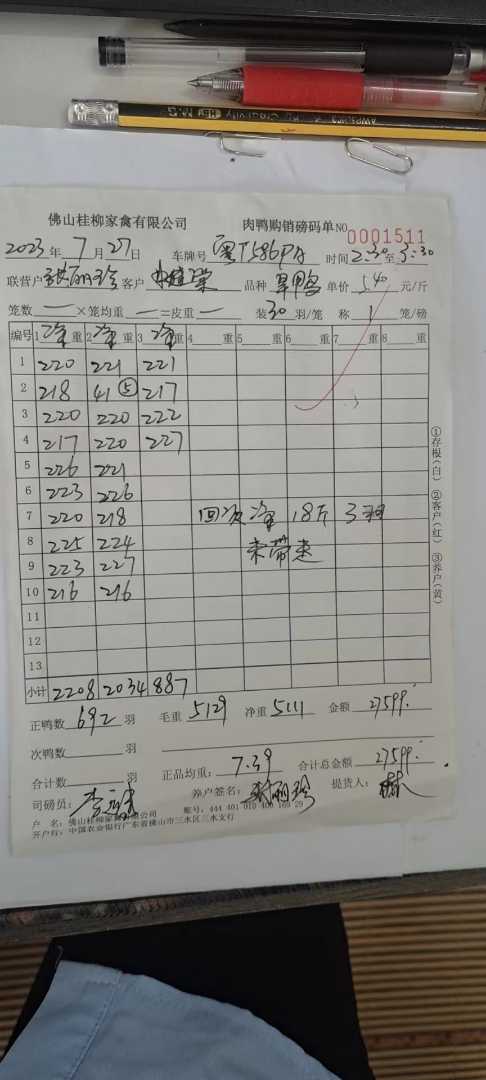 佛山桂柳家禽有限公司 肉鸭购销磅码单 NO 0001511
2023年7月27日 车牌号 粤T586PA 时间2:30至3:30
联营户 张丽珍 客户 品种 旱鸭 单价 5.40 元/斤
笼数 一 ×笼均重 一 =皮重 一 装30羽/笼 称 1 笼/磅
编号 1净重 2净重 3净重 4 重 5 重 6 重 7 重 8 重
1 220 221 221
2 218 41⑤ 217
3 220 220 222
4 217 220 227
5 226 221
6 223 226
7 220 218 回次净 18斤 3羽
8 225 224 未带走
9 223 227
10 216 216
11
12
13
小计 2208 2034 887
正鸭数 692 羽 毛重 5129 净重 5111 金额 27599.
次鸭数 羽
合计数 羽 正品均重: 7.39 合计总金额 27599.
司磅员: 养户签名: 张丽珍 提货人:
户 名: 佛山桂柳家禽有限公司 账号:
开户行: 中国农业银行广东省佛山市三水区三水支行
①存根(白) ②客户(红) ③养户(黄)